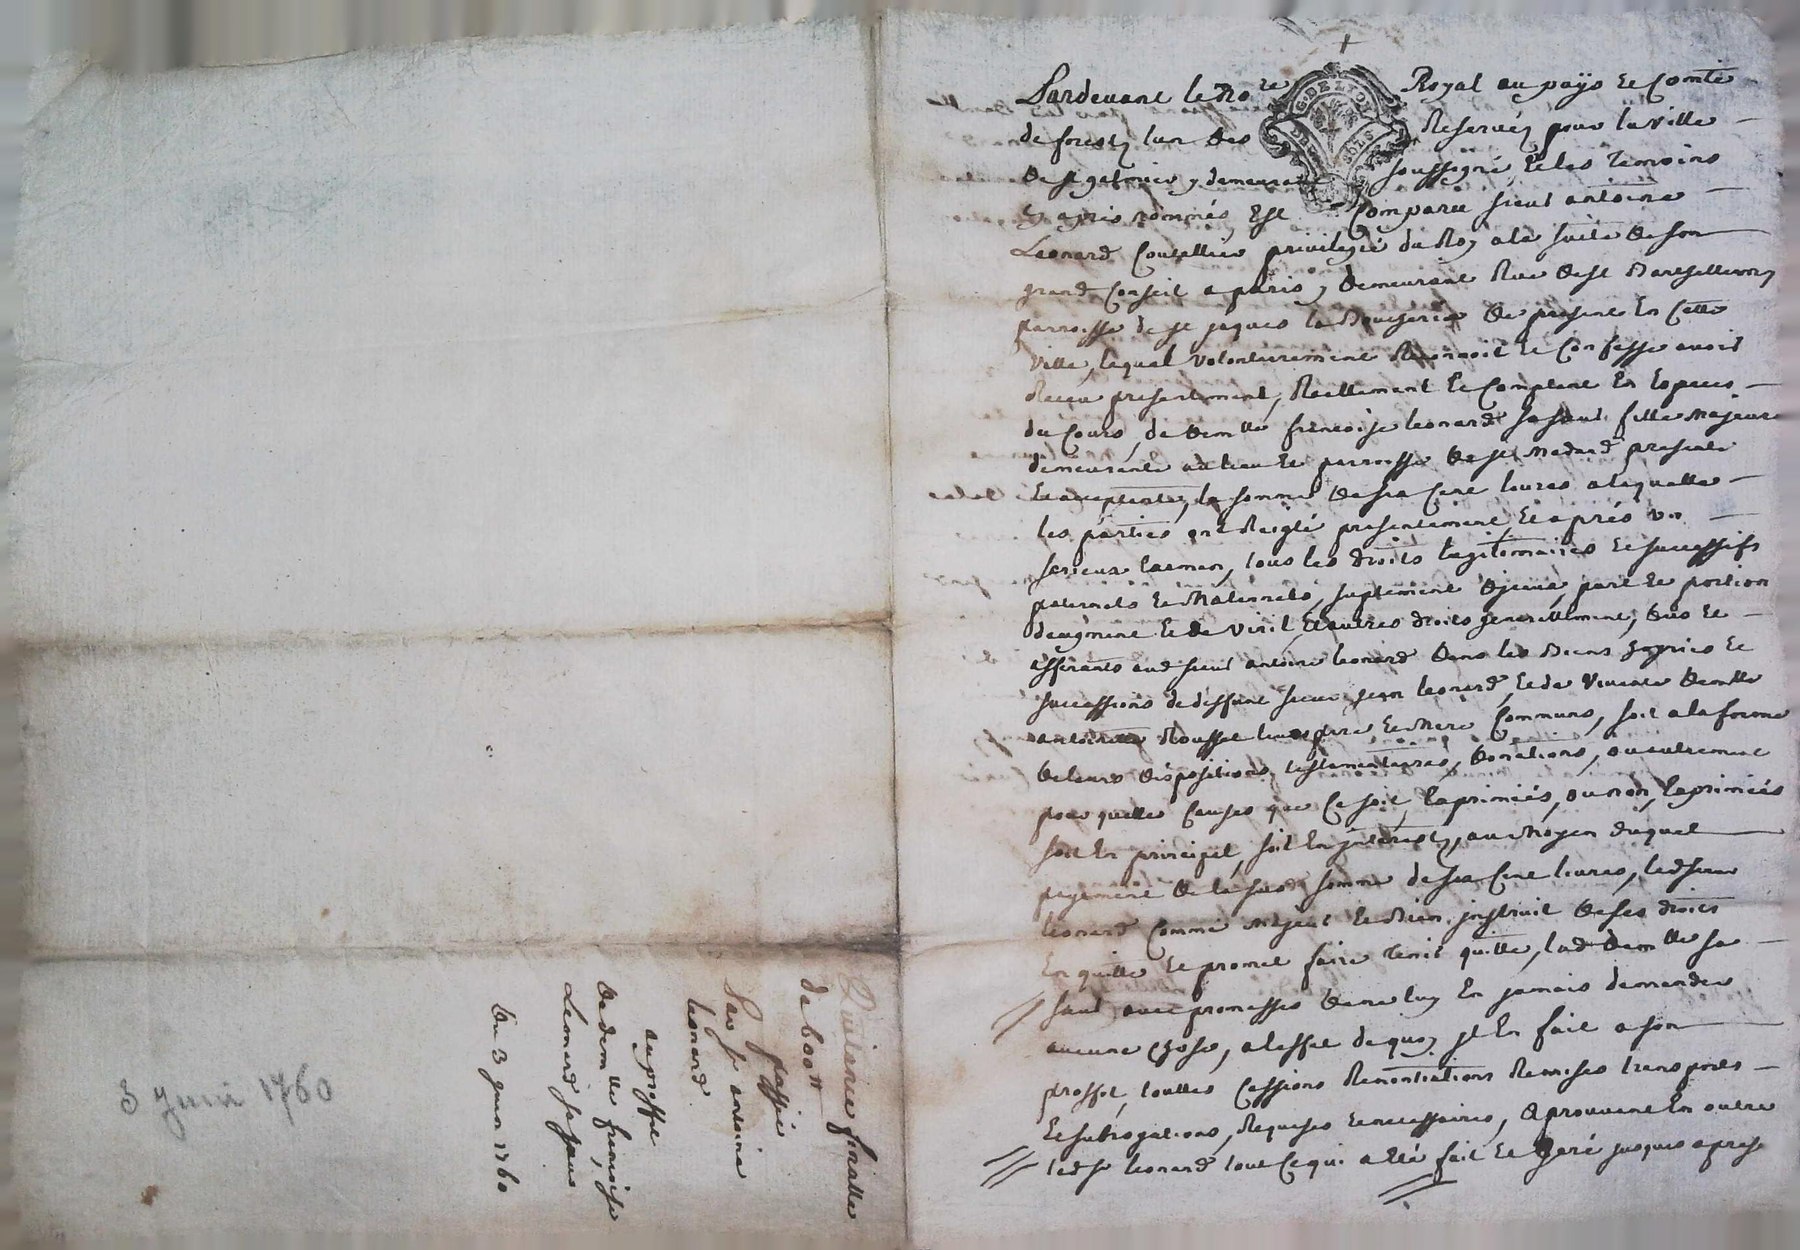 Pardevant le No.re Royal au païs et Comté
de forestz lun des Reservés pour la ville
de st galmier y demeurant soussigné, et les temoins
cy apres nommés, Est Comparu sieur antoine
Leonard Coutellier privilegié du Roy a la suite de son
grand Conseil a paris, demeurant Rue de st Barthellemy
parroisse de st jaques la Boucherie de present en Cette
ville, lequel volontairement Reconnoit et Confesse avoir
Receu presentement, Reellement et Comptant en Especes
du Cours, de demlle francoise leonard sa sœur fille Majeure
demeurante au lieu et parroisse de st Medard presente
et acceptante, la somme de six Cent livres a laquelle
les parties ont Reiglé presentement, et aprés un
serieux Examen, tous les droits legitimaires et successifs
paternels et Maternels, suplement d'jceux, part et portion
daugment et de viril, et autres droits generallement, dus et
afferants aud sieur antoine leonard dans les Biens hoyries et
successions de deffunt sieur jean leonard, et de vivante demlle
antoinette Rousset leurs pere et Mere Communs, soit a la forme
de leurs dispositions testamentaires, donations, ou autrement
pour quelles Causes que Ce soit, Exprimées, ou non Exprimées
soit en principal, soit en jnterestz, au Moyen duquel
payement de la susd somme de six Cent livres, led sieur
leonard Comme Majeur et Bien jnstruit de ses droits
En quitte et promet faire tenir quitte, lad demlle sa
sœur avec promesse de ne luy En jamais demander
aucune Chose, a leffet de quoy jl En fait a son
proffit, touttes Cessions Renontiations Remises transports
et subrogations, Requises et necessaires, aprouvant En outre
led sr leonard tout Ce qui a Eté fait et Geré jusques a prest
Quittance finalle
de 600 tt
passée
Par sr antoine
leonard
au proffit
de demlle francoise
Leonard sa sœur
du 3 juin 1760
3 juin 1760
G. DE LYON
DEUX SOLS